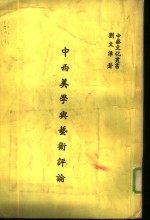 中華文化叢書
劉文潭著
中西美學與藝術評論